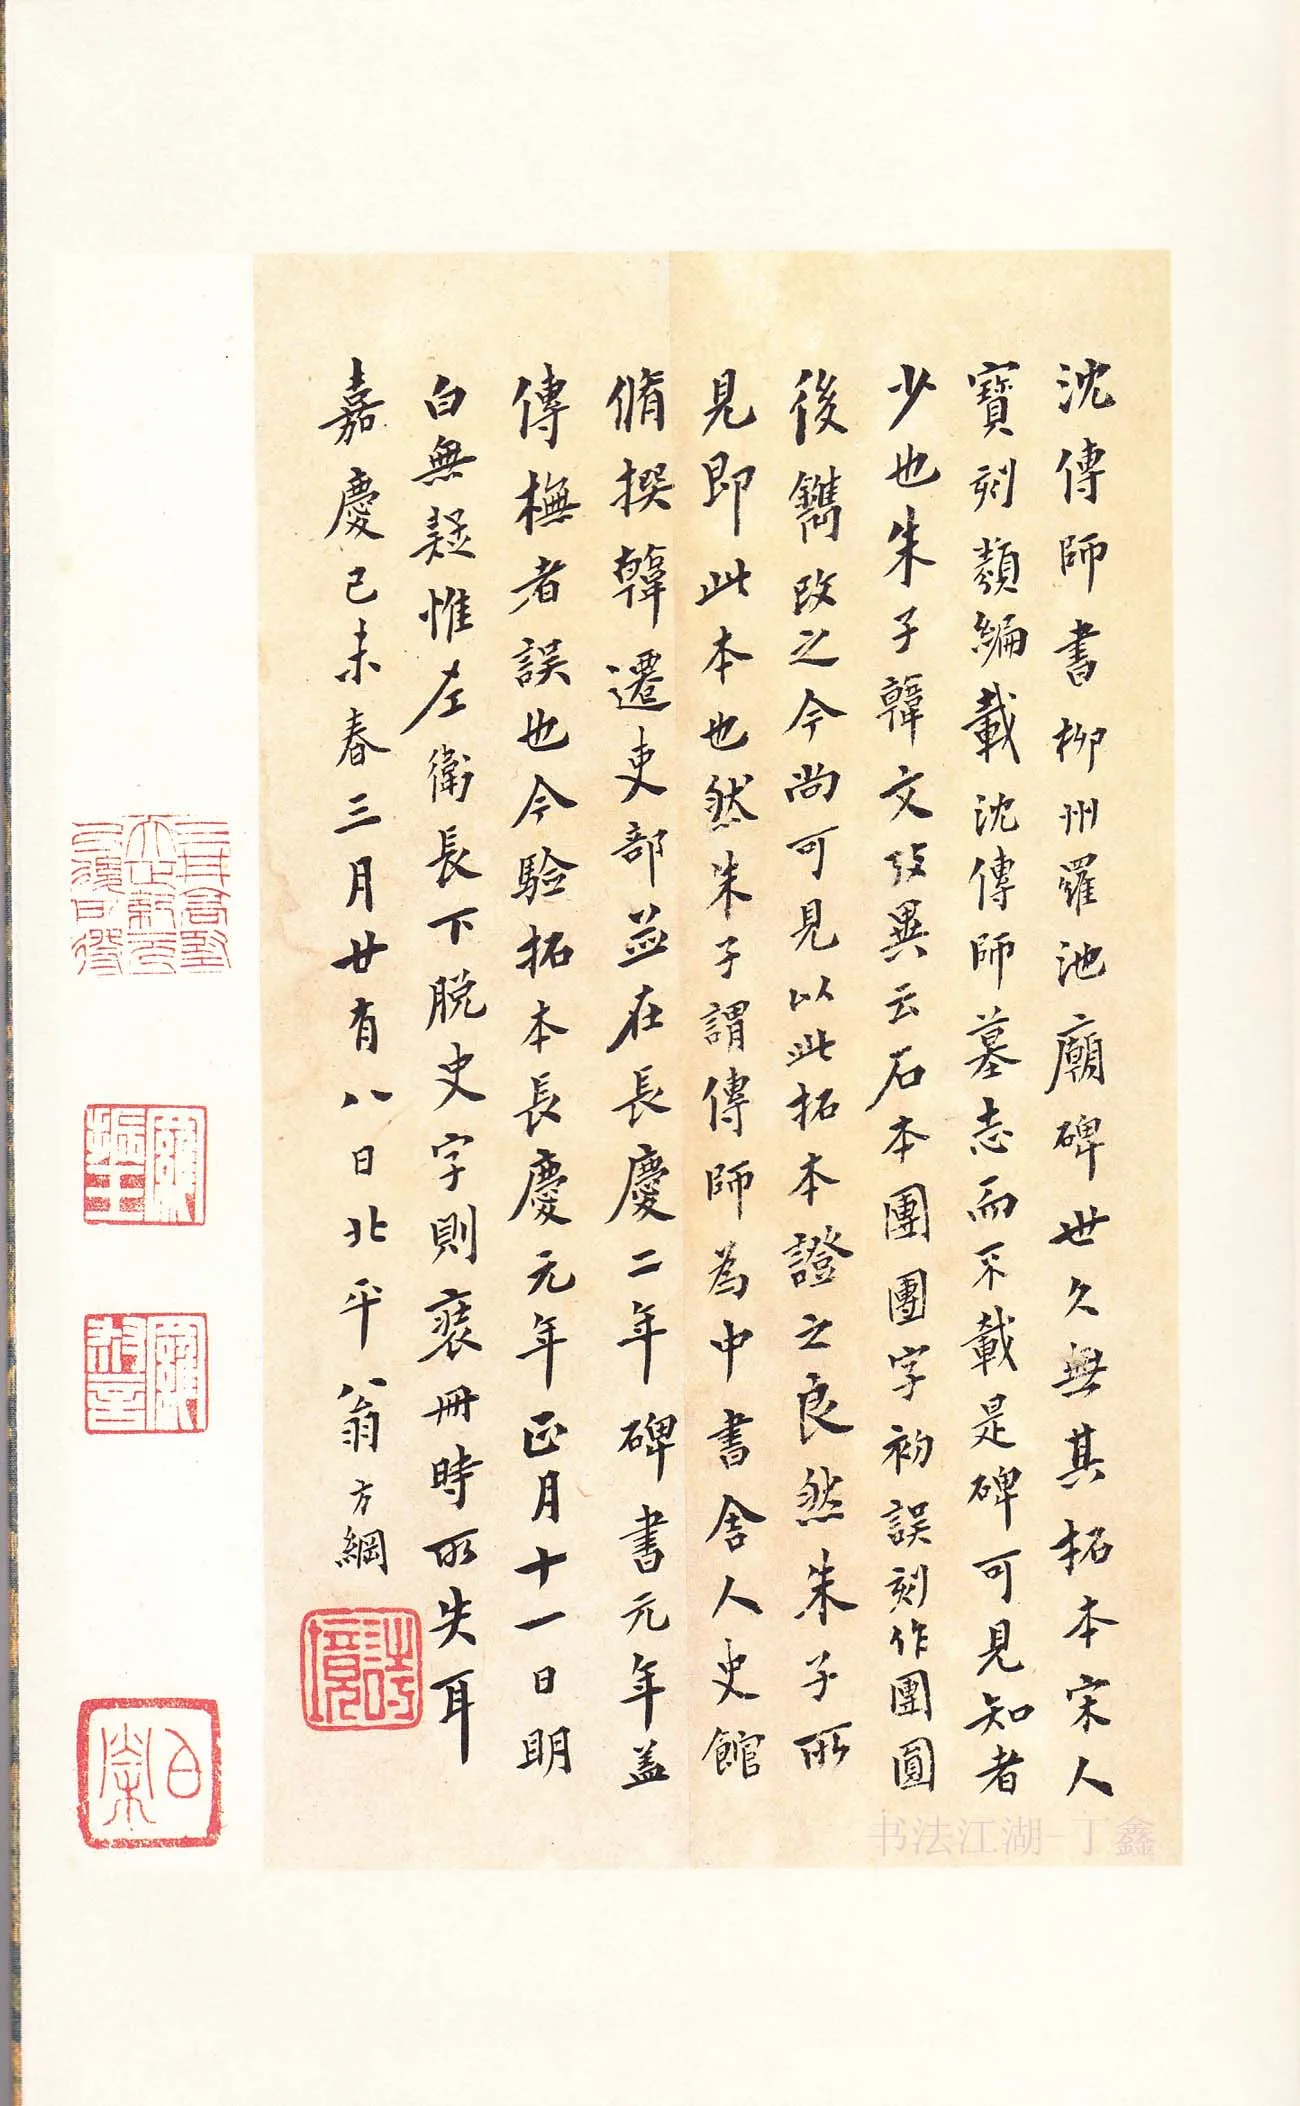 沈傳師書柳州羅池廟碑世久無其拓本宋人
寶刻類編載沈傳師墓志而不載是碑可見知者
少也朱子韓文攷異云石本團團字初誤刻作團圓
後鐫改之今尚可見以此拓本證之良然朱子所
見即此本也然朱子謂傳師為中書舍人史館
脩撰韓遷吏部並在長慶二年碑書元年蓋
傳橅者誤也今驗拓本長慶元年正月十一日明
白無疑惟左衛長下脫史字則裹冊時所失耳
嘉慶己未春三月廿有八日北平翁方綱
詩境
羅振玉
白榮
书法江湖-丁鑫